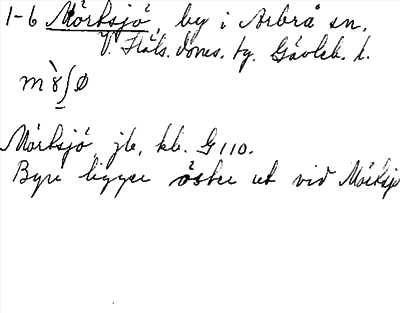 1-6 Mörtsjö, by i Arbrå sn,
V. Häls. doms. fg. Gävleb. l.
m ʏ̀ ʃ ø
Mörtsjö jb, kb. G 110.
Byn ligger öster ut vid Mörtsjö